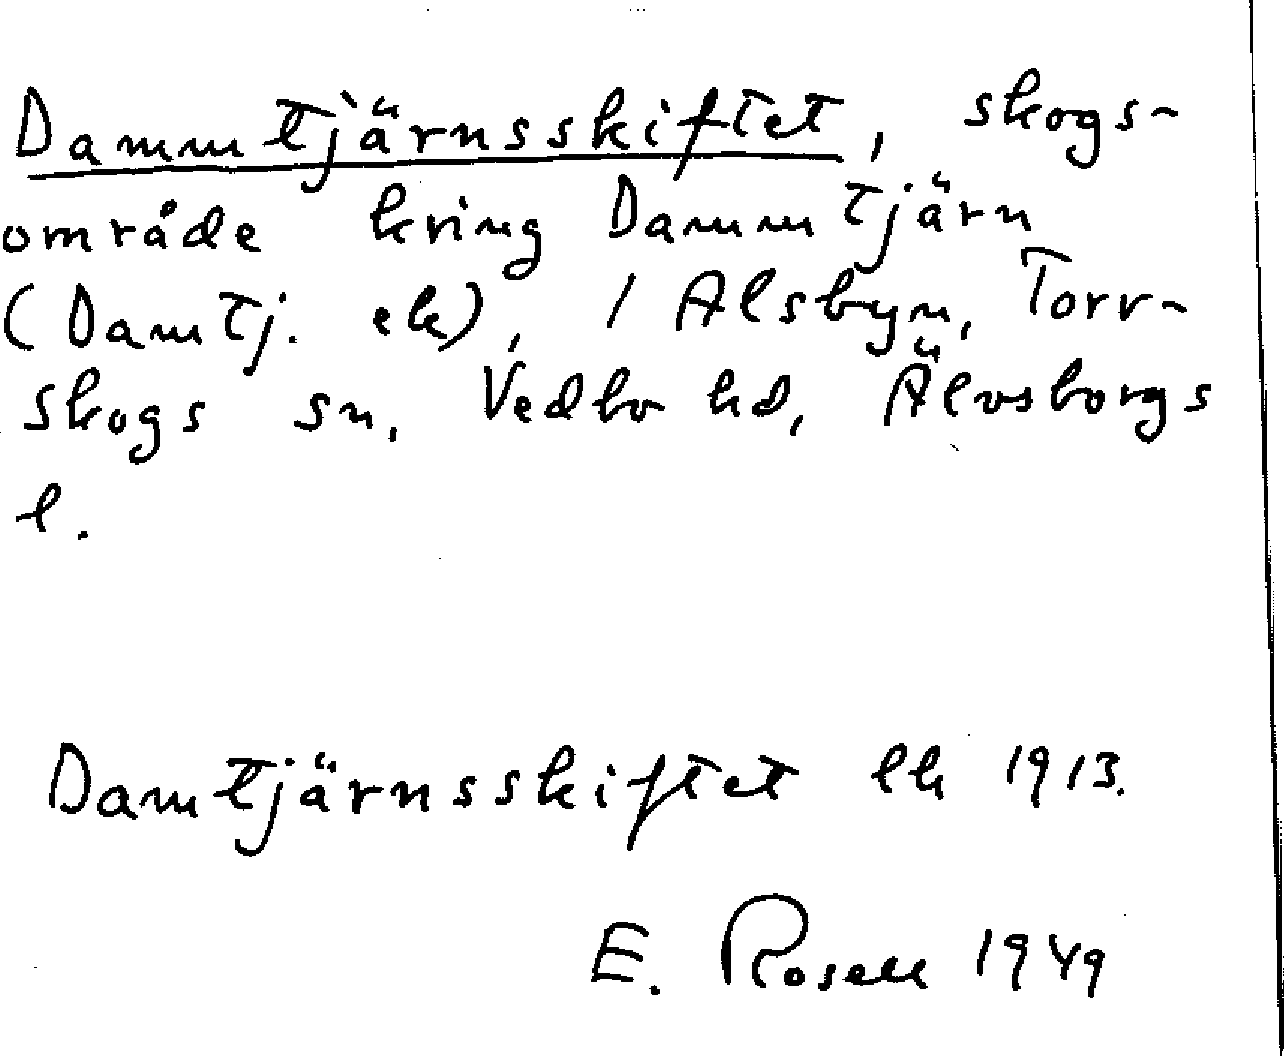 Dammtjärnsskiftet, skogs-
område kring Dammtjärn
(Damtj. ek), / Alsbyn, Torr-
skogs sn, Vedbo hd, Älvsborgs
l.
Damtjärnsskiftet lk 1913.
E. Rosell 1949